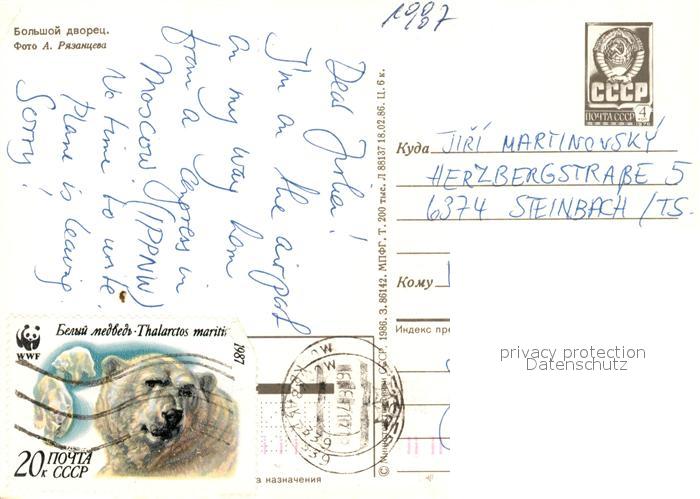 Большой дворец.
Фото А. Рязанцева
1987
Dear Jirka!
I'm on the airport
on my way home
from a congress in
Moscow (IPPNW)
No time to write,
plane is leaving.
Sorry!
СССР
ПОЧТА СССР 4
Куда JIŘÍ MARTINOVSKÝ
HERZBERGSTRAßE 5
6374 STEINBACH/TS.
Кому
Индекс пре
privacy protection
Datenschutz
1986. З. 86142. МПФГ. Т. 200 тыс. Л 88137 18.02.86. Ц. 6 к.
WWF
Белый медведь·Thalarctos mariti
1987
20к ПОЧТА
СССР
а назначения